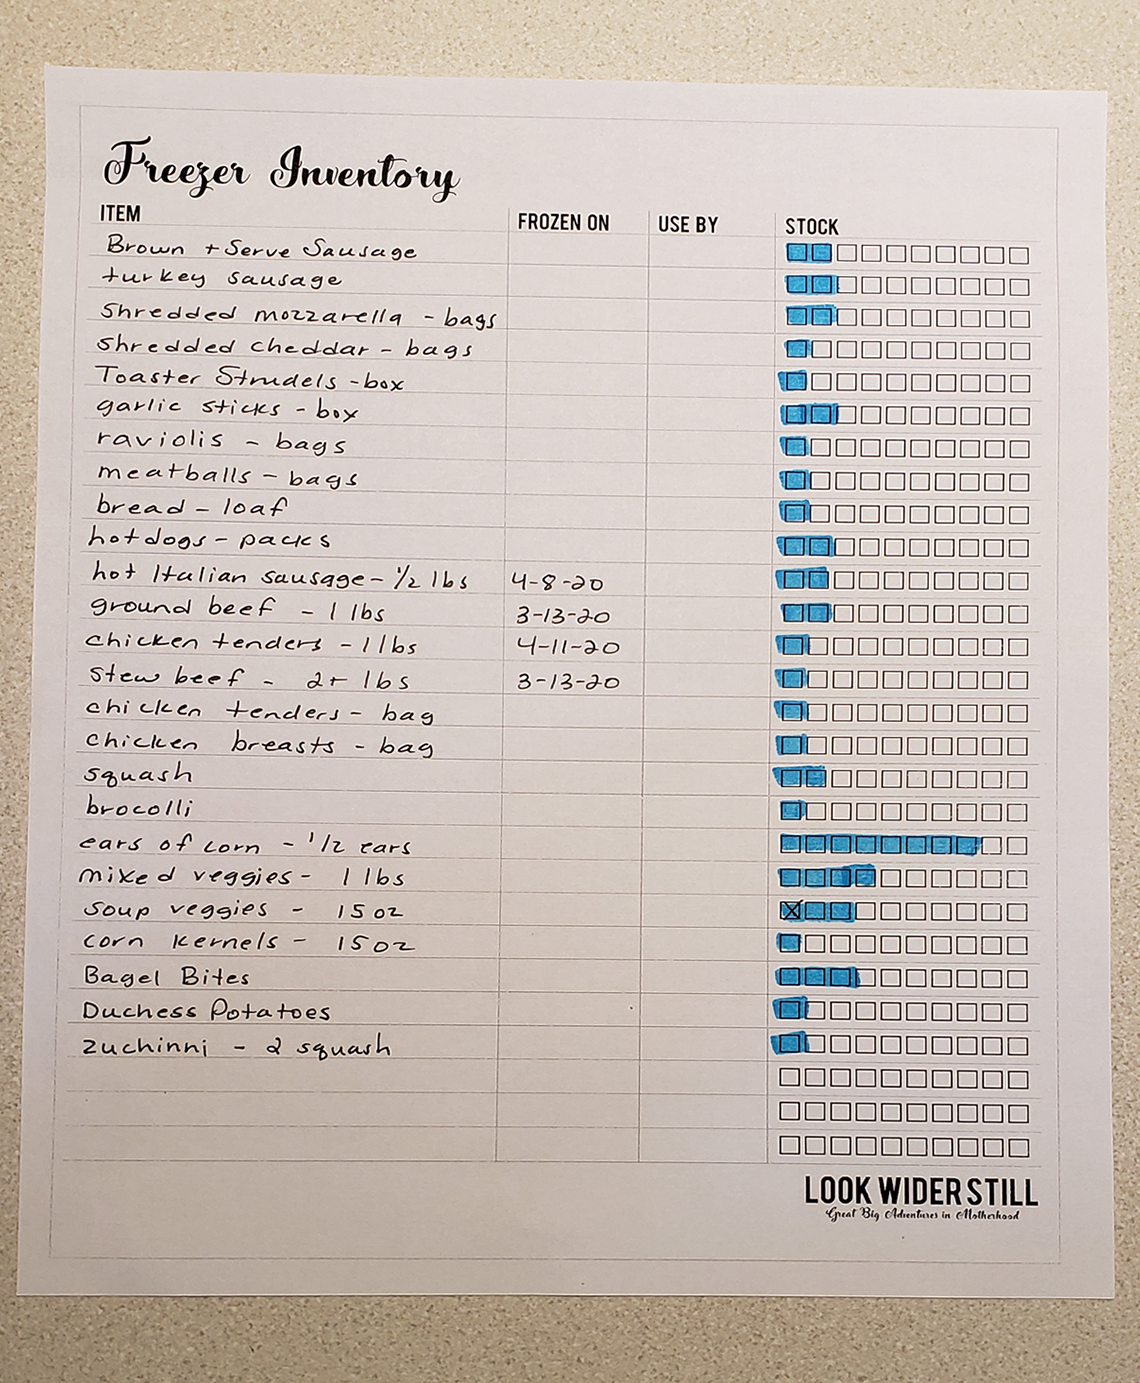 Freezer Inventory
ITEM FROZEN ON USE BY STOCK
Brown + Serve Sausage
turkey sausage
shredded mozzarella - bags
shredded cheddar - bags
Toaster Strudels - box
garlic sticks - box
raviolis - bags
meatballs - bags
bread - loaf
hotdogs - packs
hot Italian sausage - 1/2 lbs 4-8-20
ground beef - 1 lbs 3-13-20
chicken tenders - 1 lbs 4-11-20
Stew beef - 2+ lbs 3-13-20
chicken tenders - bag
chicken breasts - bag
squash
brocolli
ears of corn - 1/2 ears
mixed veggies - 1 lbs
soup veggies - 15 oz
corn kernels - 15 oz
Bagel Bites
Duchess Potatoes
zuchinni - 2 squash
LOOK WIDER STILL
Great Big Adventures in Motherhood